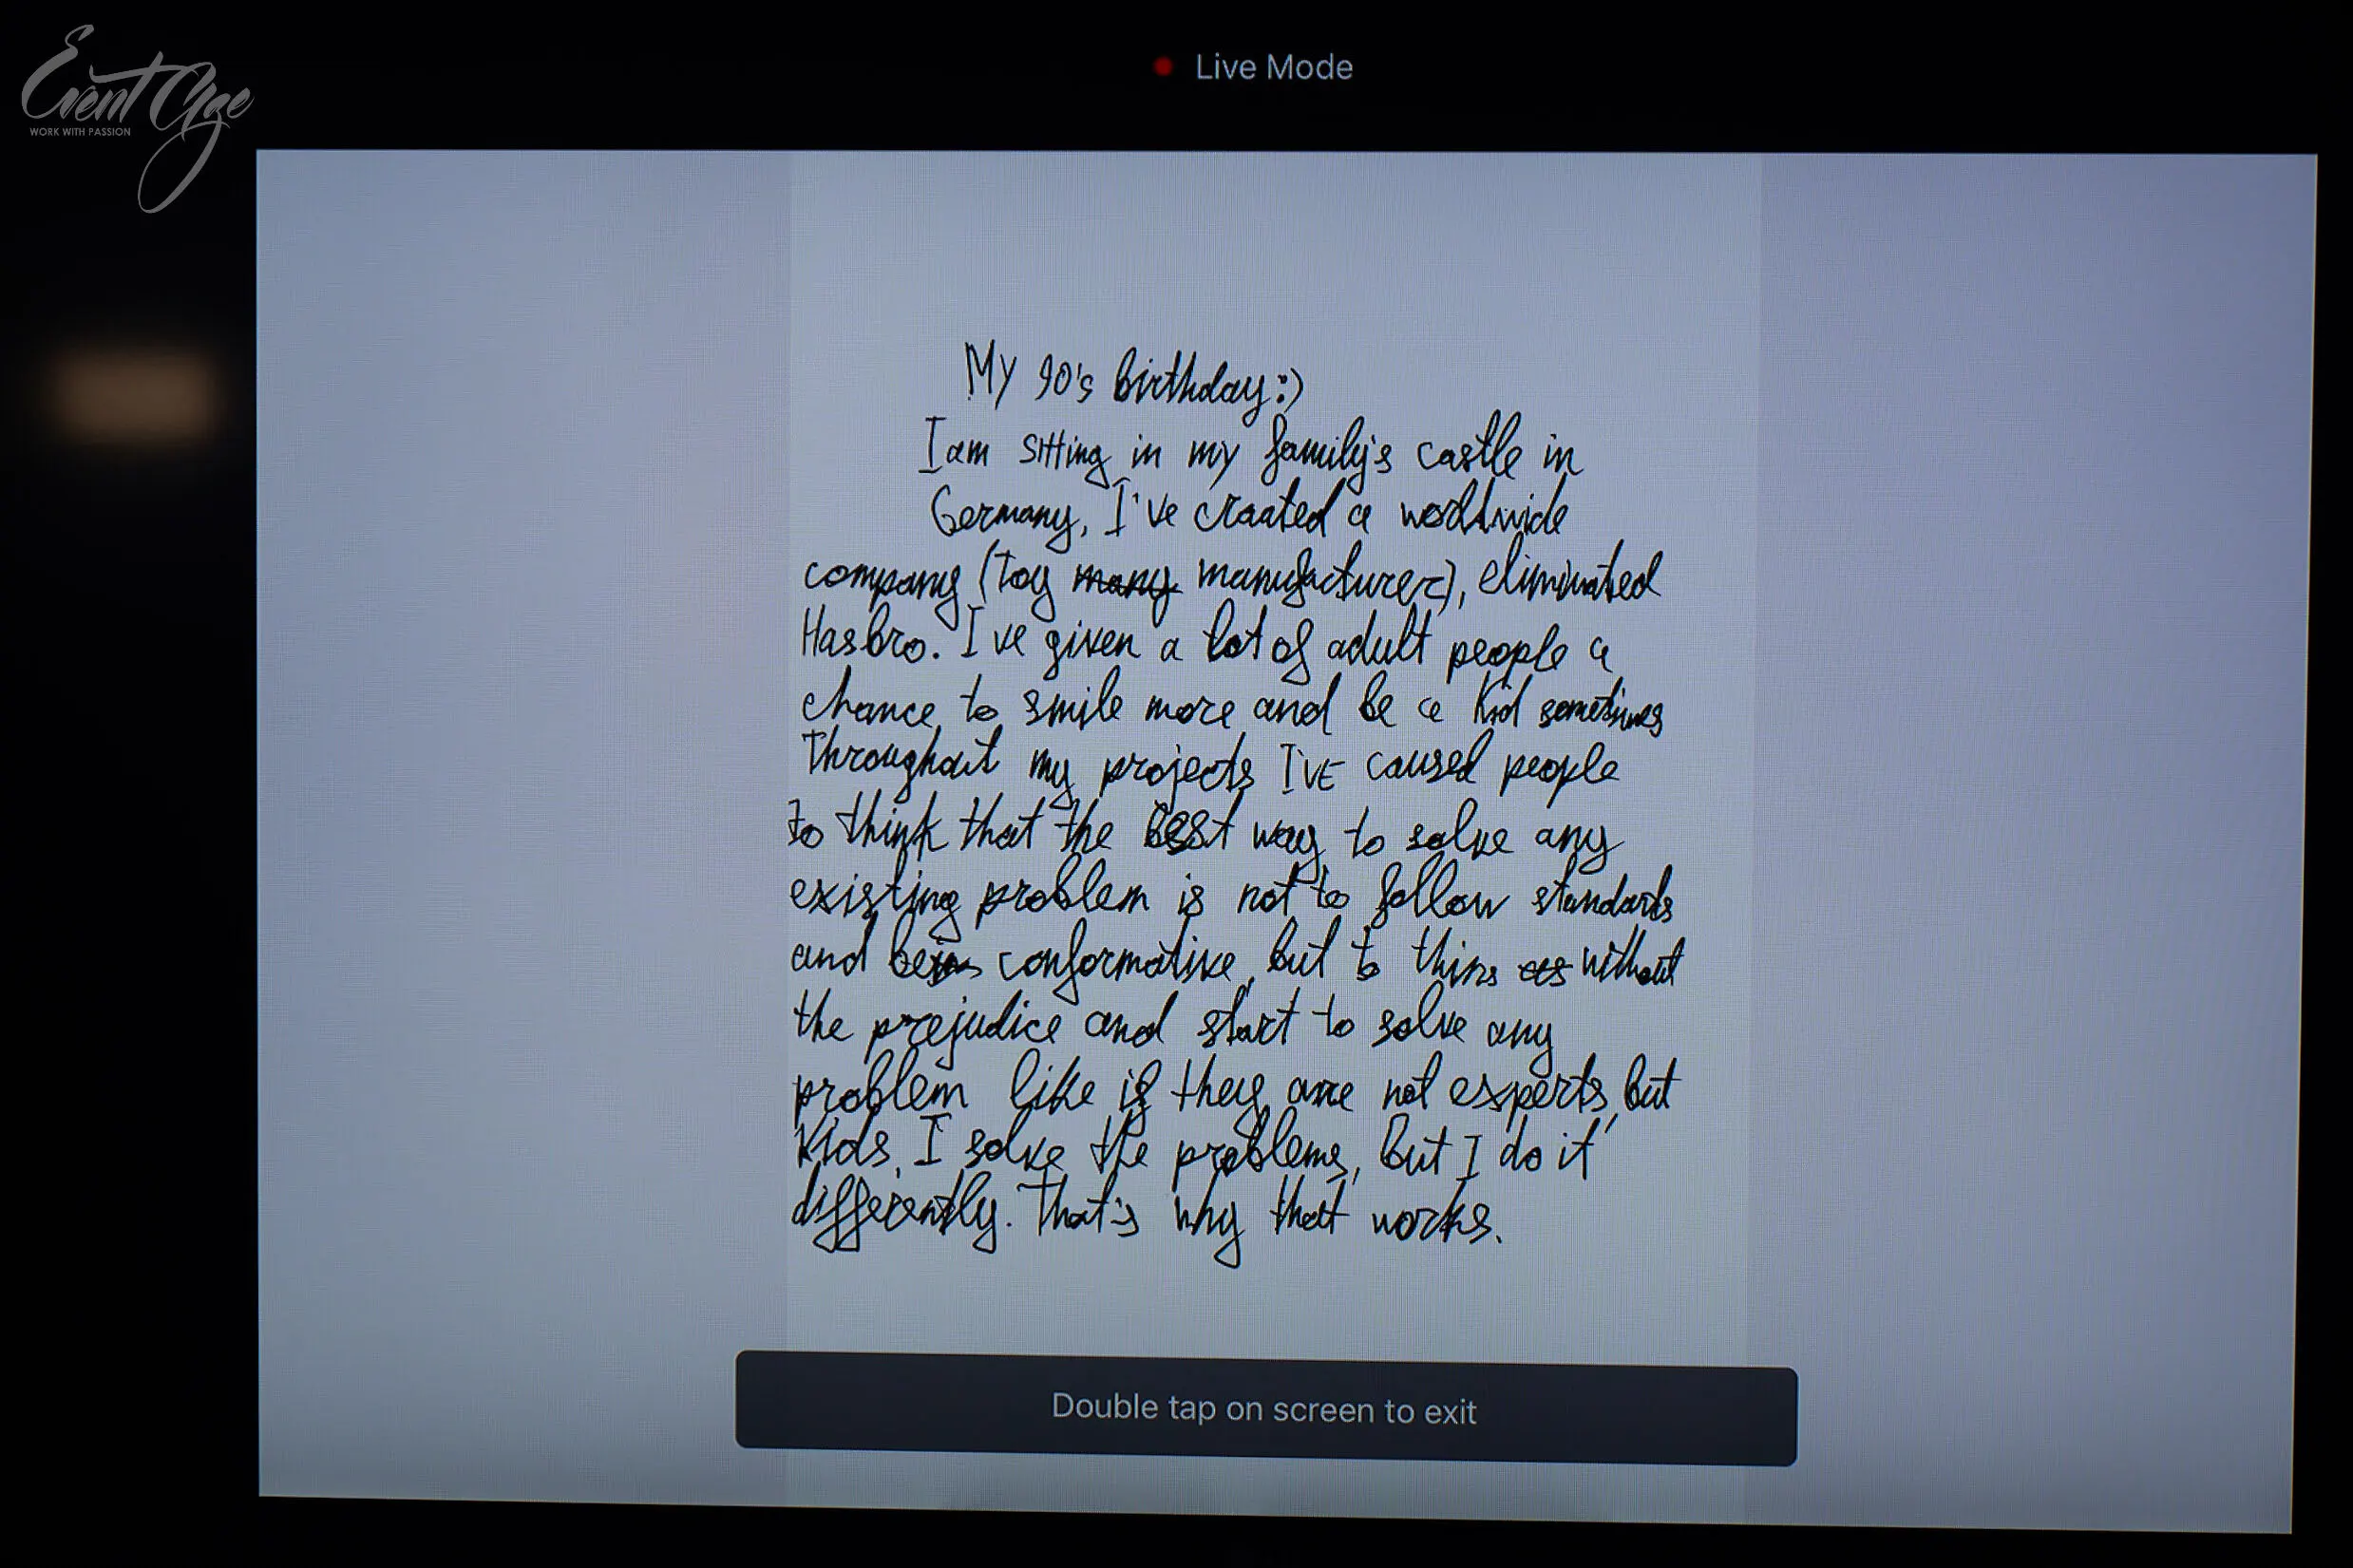 Event Age
WORK WITH PASSION
Live Mode
My 90's birthday:)
I am sitting in my family's castle in
Germany, I've craated a worldwide
company (toy many manufacturer), eliminated
Hasbro. I've given a lot of adult people a
chance to smile more and be a kid sometimes
Throughout my projects I'VE caused people
to think that the best way to solve any
existing problem is not to follow standarts
and conformative, but to think as without
the prejudice and start to solve any
problem like if they are not experts, but
kids. I solve the problems, But I do it
differently. That's why that works.
Double tap on screen to exit